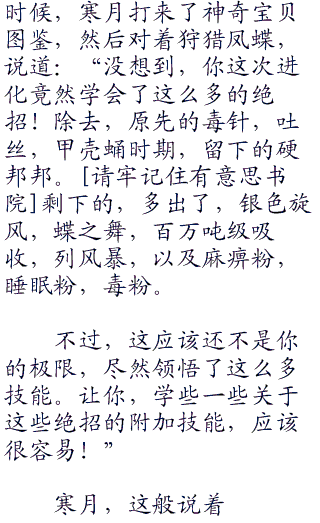 时候，寒月打来了神奇宝贝
图鉴，然后对着狩猎凤蝶，
说道：“没想到，你这次进
化竟然学会了这么多的绝
招！除去，原先的毒针，吐
丝，甲壳蛹时期，留下的硬
邦邦。[请牢记住有意思书
院]剩下的，多出了，银色旋
风，蝶之舞，百万吨级吸
收，列风暴，以及麻痹粉，
睡眠粉，毒粉。
不过，这应该还不是你
的极限，尽然领悟了这么多
技能。让你，学些一些关于
这些绝招的附加技能，应该
很容易！”
寒月，这般说着